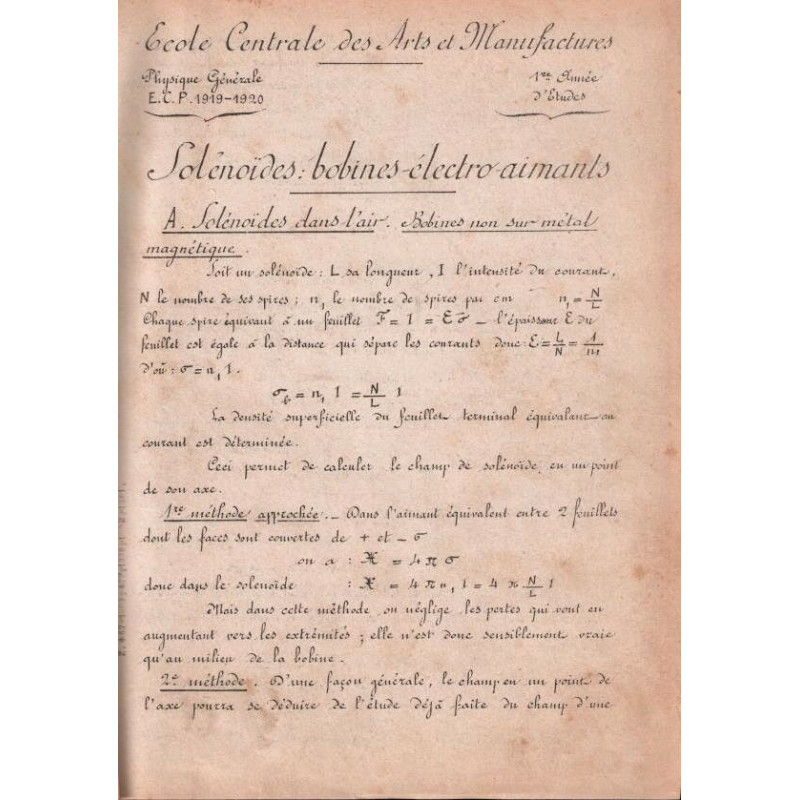 Ecole Centrale des Arts et Manufactures
Physique Générale
E.C.P. 1919-1920
1re Année
d'Etudes
Solénoïdes: bobines-électro-aimants
A. Solénoïdes dans l'air. Bobines non sur métal
magnétique.
Soit un solénoïde : L sa longueur, I l'intensité du courant,
N le nombre de ses spires ; n₁ le nombre de spires par cm n₁ = N/L
Chaque spire équivaut à un feuillet F = I = Ɛσ _ l'épaisseur Ɛ du
feuillet est égale à la distance qui sépare les courants donc Ɛ = L/N = 1/n₁
d'où : σ = n₁ I.
σ = n₁ I = N/L I
La densité superficielle du feuillet terminal équivalent au
courant est déterminée.
Ceci permet de calculer le champ de solénoïde en un point
de son axe.
1re méthode approchée. _ Dans l'aimant équivalent entre 2 feuillets
dont les faces sont couvertes de + et - σ
on a : ℋ = 4 π σ
donc dans le solenoïde : ℋ = 4 π n₁ I = 4 π N/L I
Mais dans cette méthode on néglige les pertes qui vont en
augmentant vers les extrémités ; elle n'est donc sensiblement vraie
qu'au milieu de la bobine.
2e méthode. D'une façon générale, le champ en un point de
l'axe pourra se déduire de l'étude déjà faite du champ d'une